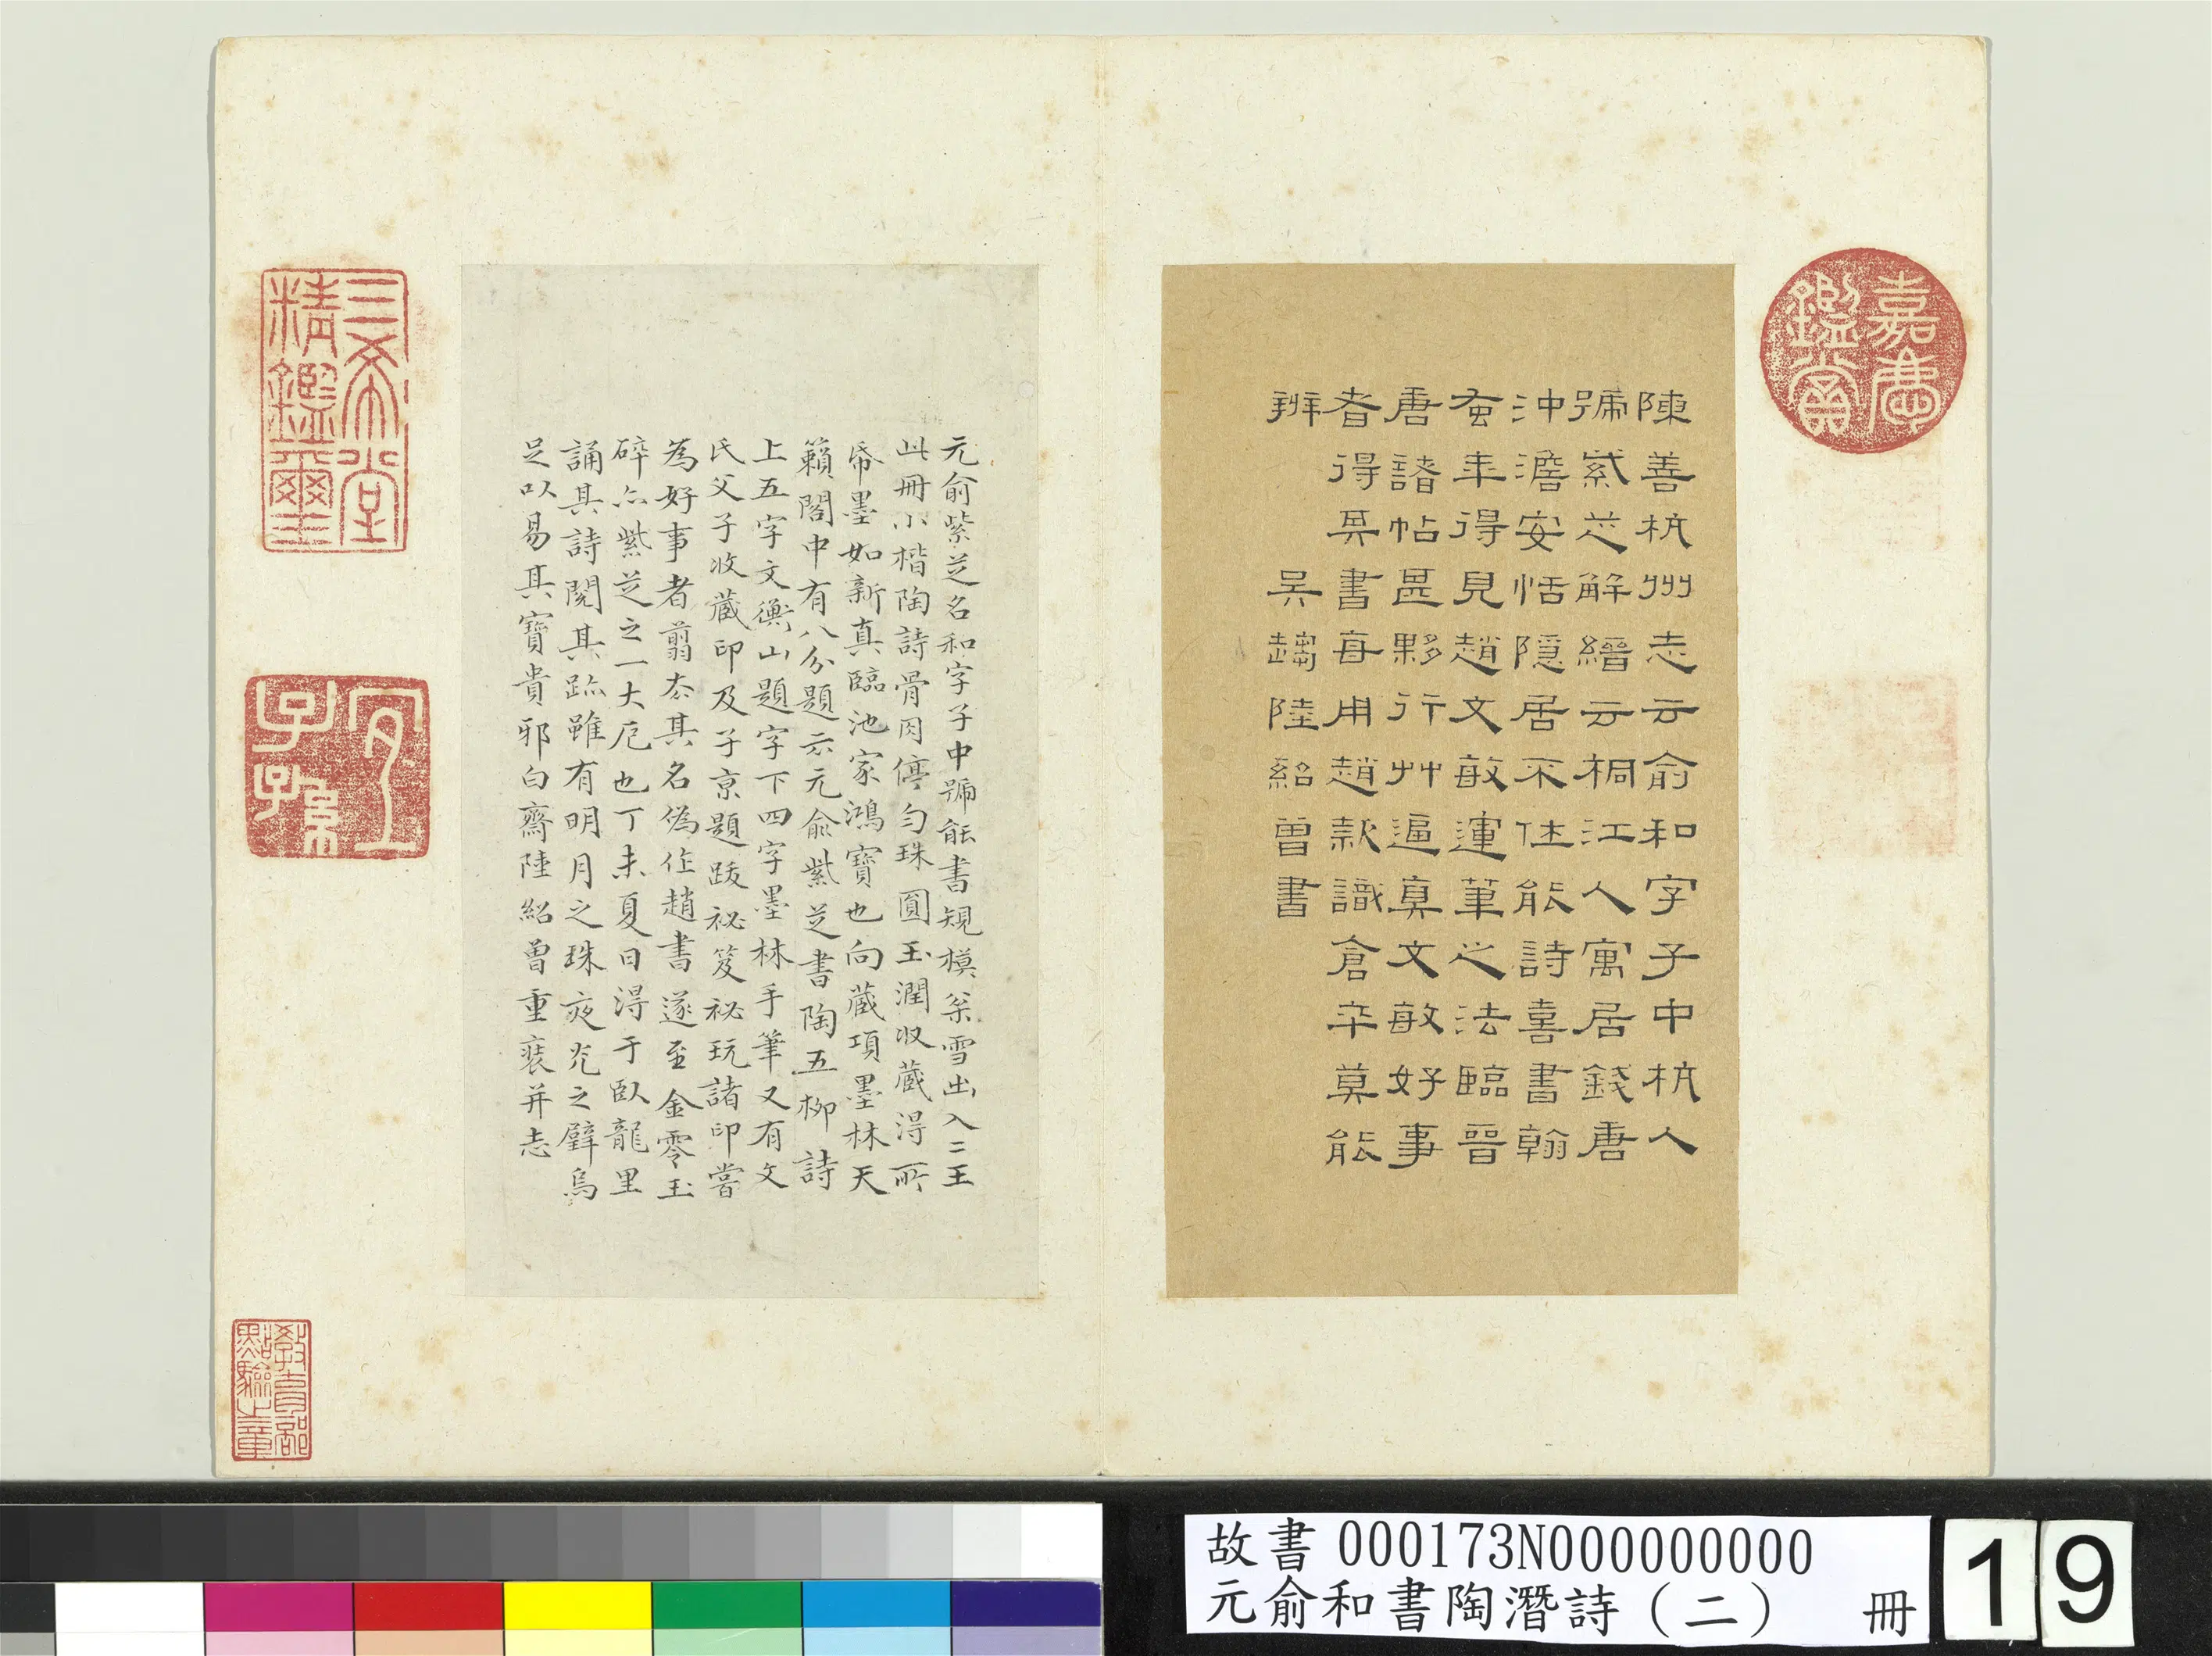 嘉慶鑑賞
陳善杭州志云俞和字子中杭人
號紫芝解縉云桐江人寓居錢唐
沖澹安恬隱居不仕能詩喜書翰
蚤年得見趙文敏運筆之法臨晉
唐諸帖甚夥行艸逼真文敏好事
者得其書每用趙款識倉卒莫能
辨　吳趨陸紹曾書
元俞紫芝名和字子中號能書規模松雪出入二王
此冊小楷陶詩骨肉停勻珠圓玉潤收藏得所
帋墨如新真臨池家鴻寶也向藏項墨林天
籟閣中有八分題云元俞紫芝書陶五柳詩
上五字文衡山題字下四字墨林手筆又有文
氏父子收藏印及子京題跋祕笈祕玩諸印嘗
為好事者翦去其名偽作趙書遂至金零玉
碎亦紫芝之一大厄也丁未夏日得于臥龍里
誦其詩閱其跡雖有明月之珠夜光之璧烏
足以易其寶貴邪白齋陸紹曾重裝并志
三希堂精鑑璽
宜子孫
教育部點驗之章
故書 000173N000000000
元俞和書陶潛詩（二）　冊
19